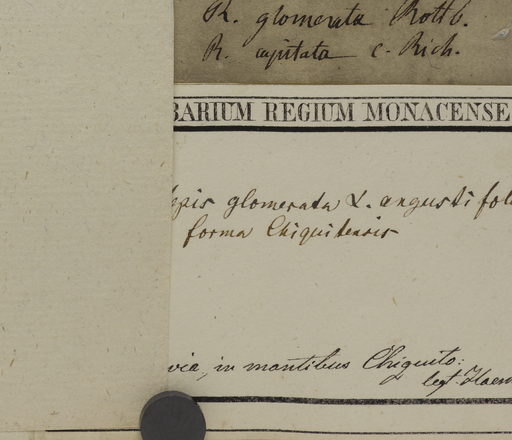 R. glomerata Rottb.
R. capitata c. Rich.
BARIUM REGIUM MONACENSE
lepis glomerata α. angustifol
forma Chiquitensis
via, in montibus Chiquito:
legt. Haen